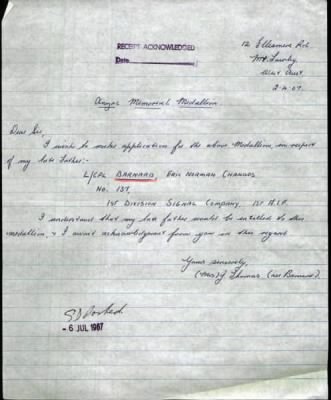 RECEIPT ACKNOWLEDGED
Date
12 Ellesmere Rd.
Mt. Lawley
West Aust
2.4.67.
Anzac Memorial Medallion
Dear Sir,
I wish to make application for the above Medallion, in respect
of my late Father:-
L/CPL BARNARD, ERIC NORMAN CHANDOS
No. 137,
1ST DIVISION SIGNAL COMPANY, 1ST A.I.F.
I understand that my late father would be entitled to this
medallion, & I await acknowledgment from you in this regard
Yours sincerely,
(Mrs) J Thomas (nee Barnard).
-6 JUL 1967